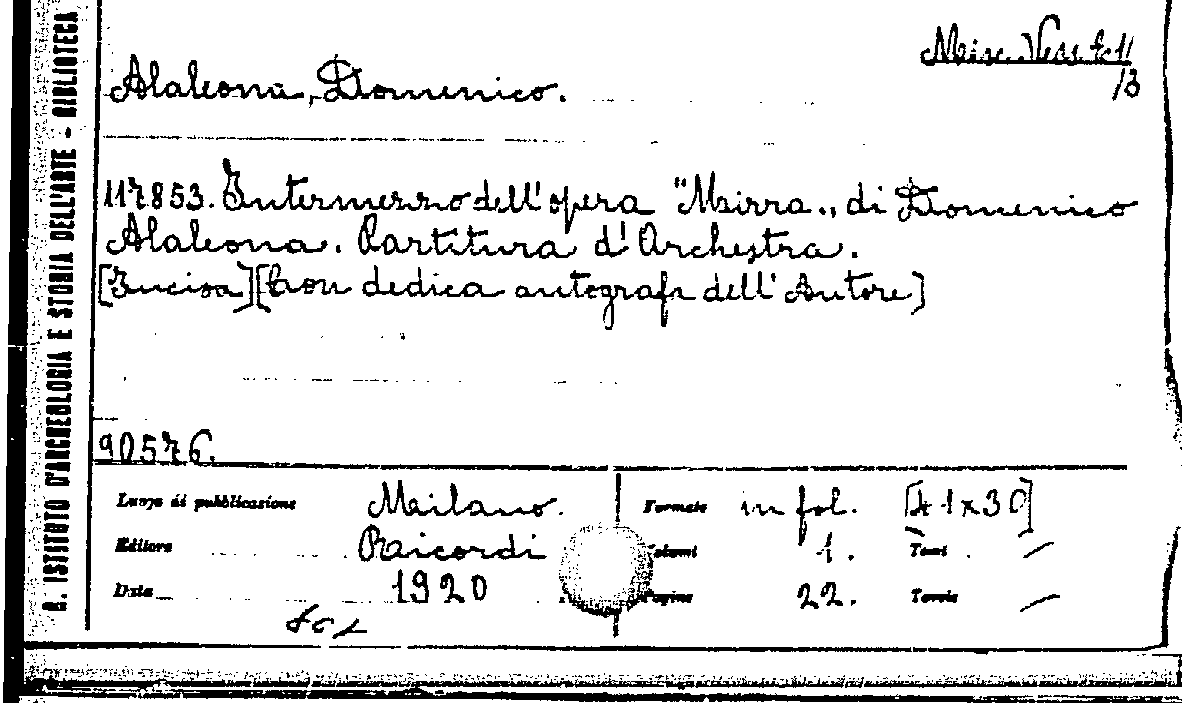 R. ISTITUTO D'ARCHEOLOGIA E STORIA DELL'ARTE - BIBLIOTECA
Misc. Vess.
/3
Alaleona, Domenico.
117853. Intermezzo dell'opera "Mirra„ di Domenico
Alaleona. Partitura d'Orchestra.
[Incisa] [Con dedica autografa dell'Autore]
90576.
Luogo di pubblicazione Milano. Formato in fol. [41x30]
Editore Ricordi Volumi 1. Tomi —
Data 1920 Pagine 22. Tavole —